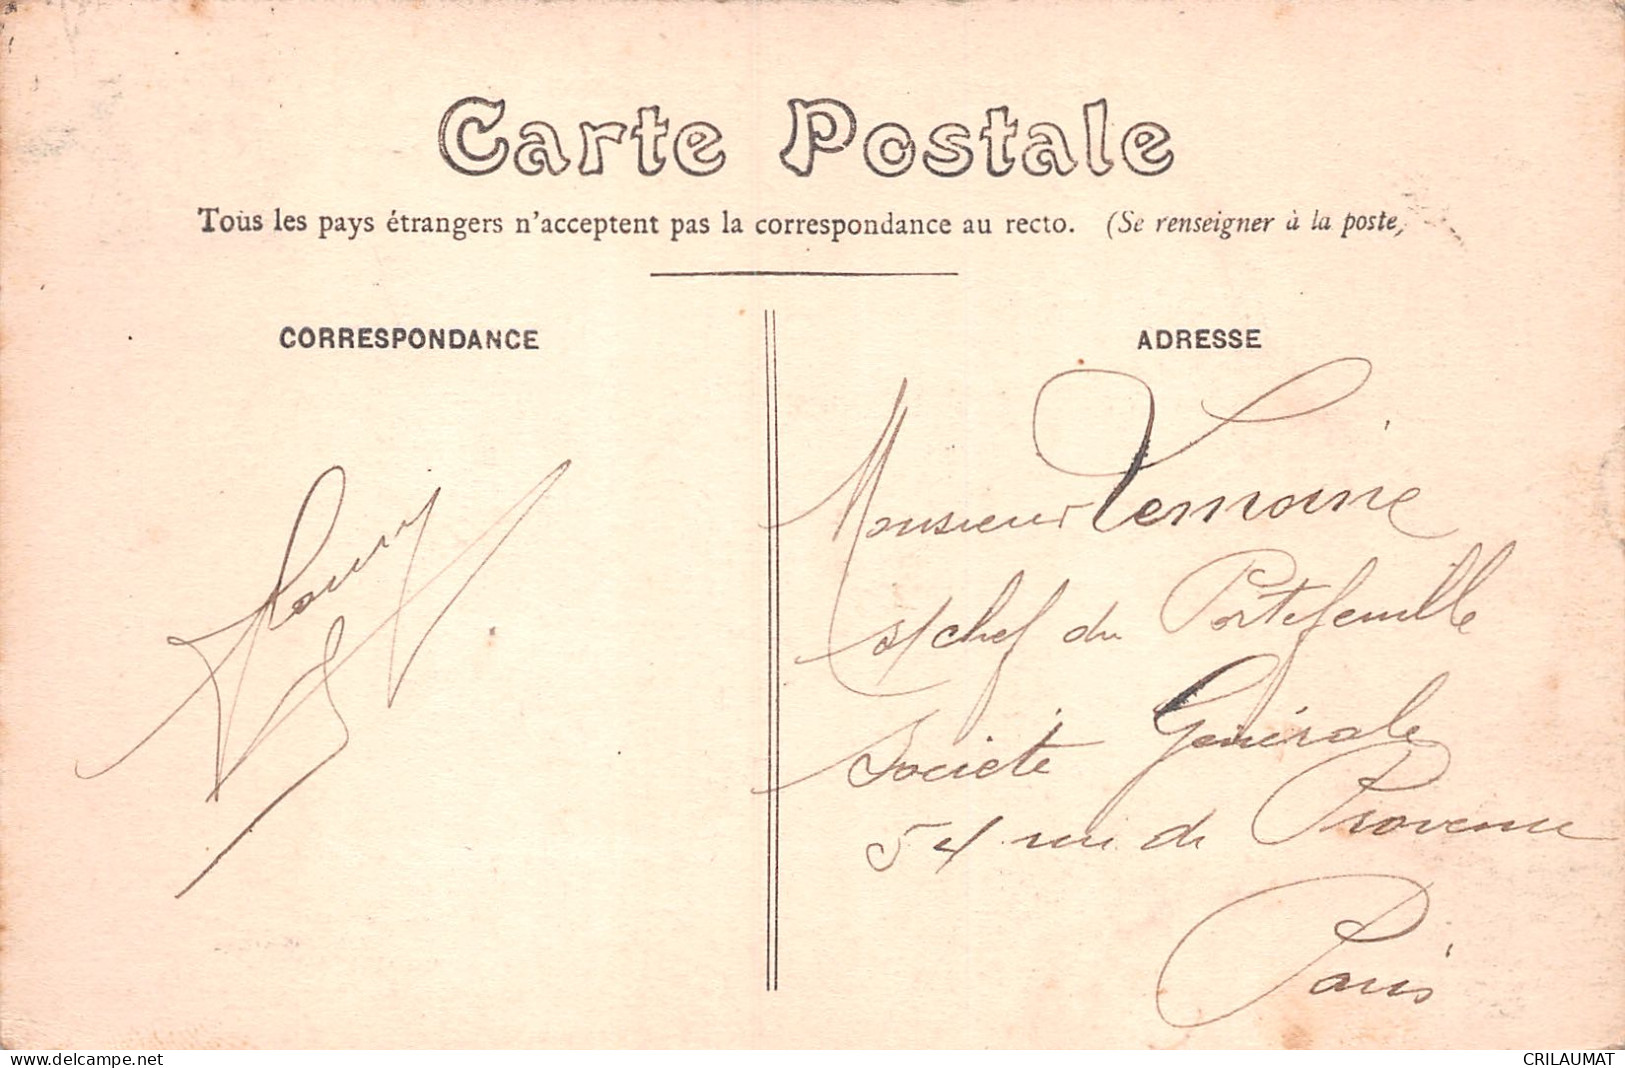 Carte Postale
Tous les pays étrangers n'acceptent pas la correspondance au recto. (Se renseigner à la poste,
CORRESPONDANCE
ADRESSE
Monsieur Lemoine
s/chef du Portefeuille
Société Générale
54 rue de Provence
Paris
www.delcampe.net
CRILAUMAT